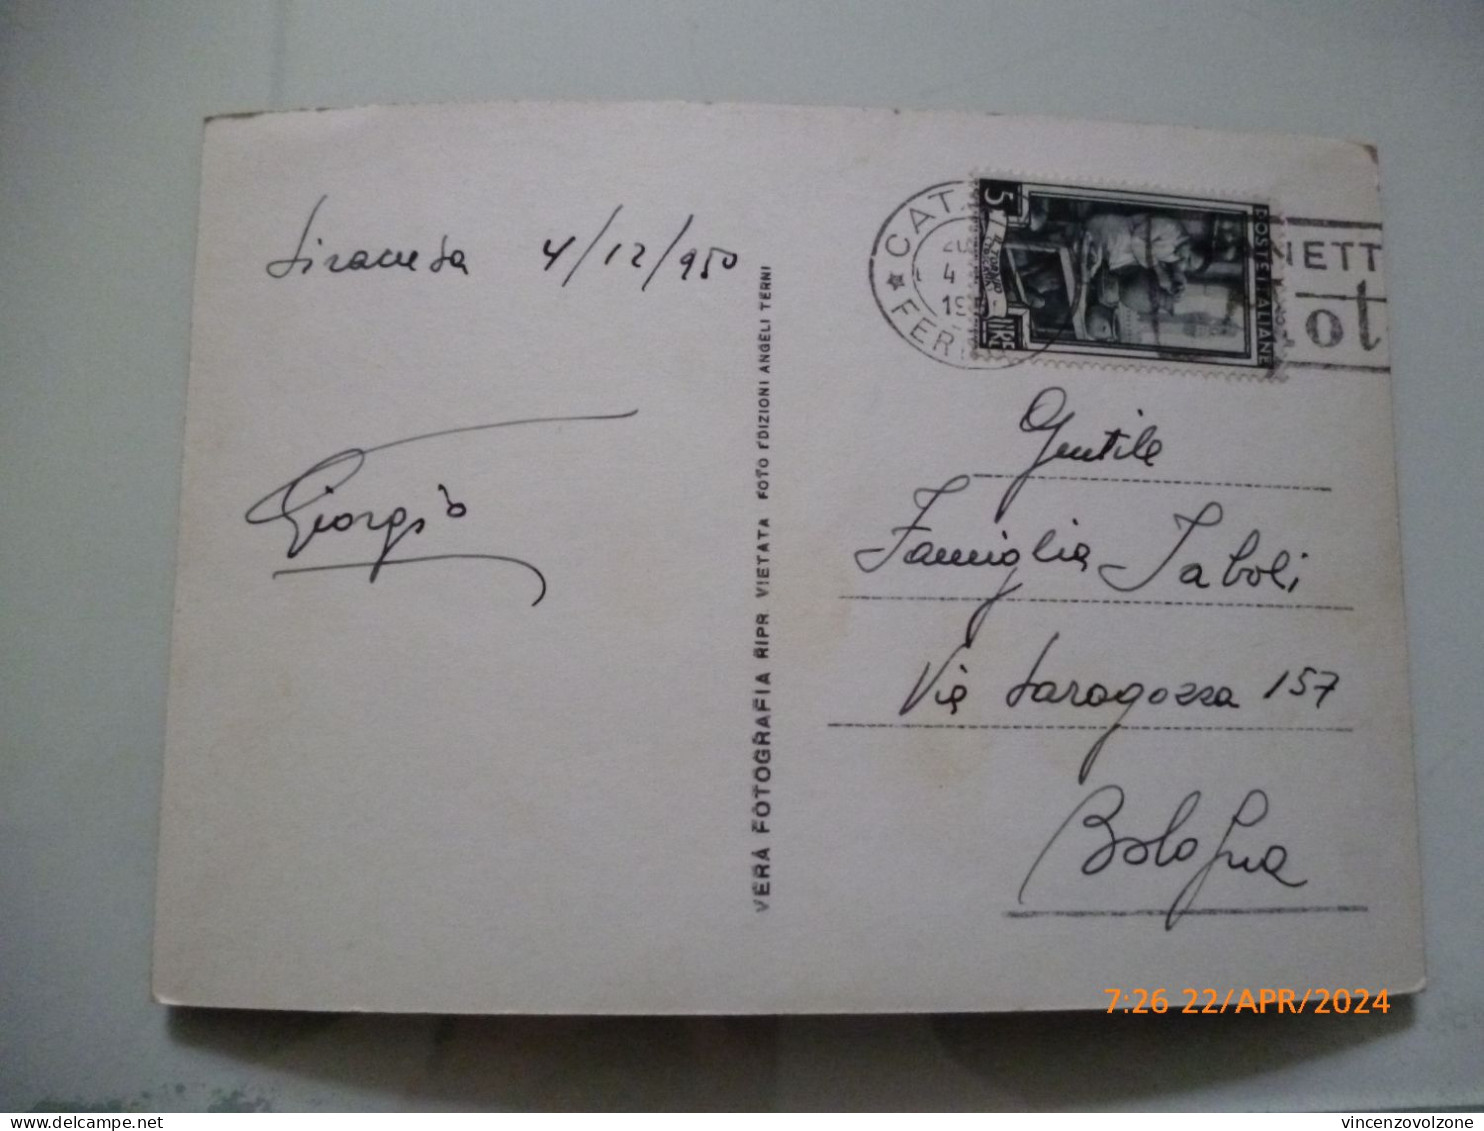 Siracusa 4/12/950
Giorgio
VERA FOTOGRAFIA RIPR VIETATA FOTO EDIZIONI ANGELI TERNI
CAT
4
19
FER
5
LIRE
POSTE ITALIANE
NETT
Gentile
Famiglia Taboli
Via Saragozza 157
Bologna
7:26 22/APR/2024
delcampe.net
vincenzovolzone